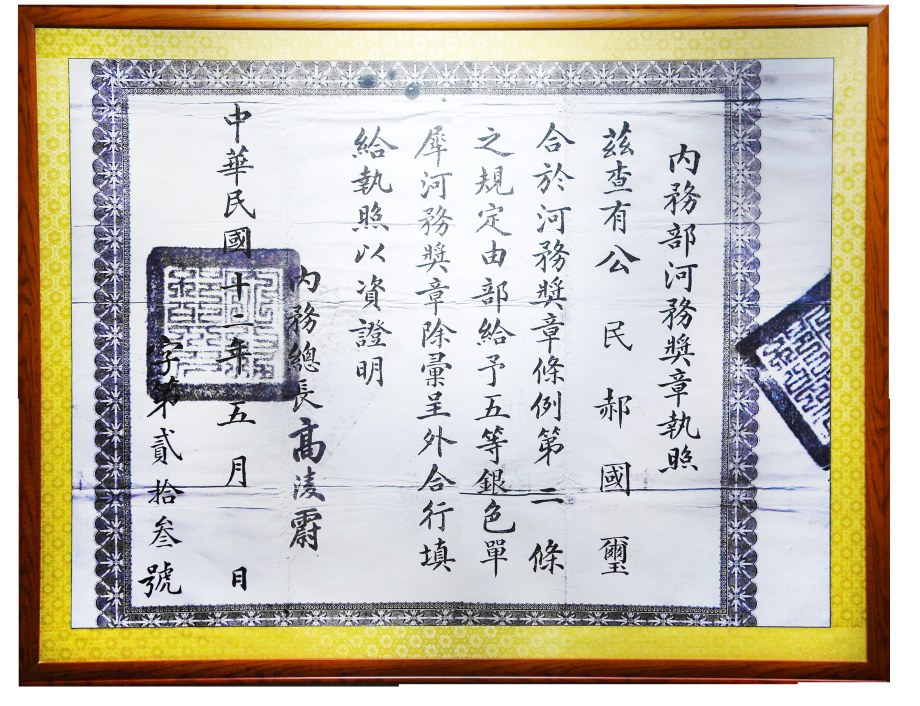 內務部河務獎章執照
茲查有公民郝國璽
合於河務獎章條例第二條
之規定由部給予五等銀色單
犀河務獎章除彙呈外合行填
給執照以資證明
內務總長高凌霨
中華民國十一年五月日
字第貳拾叁號